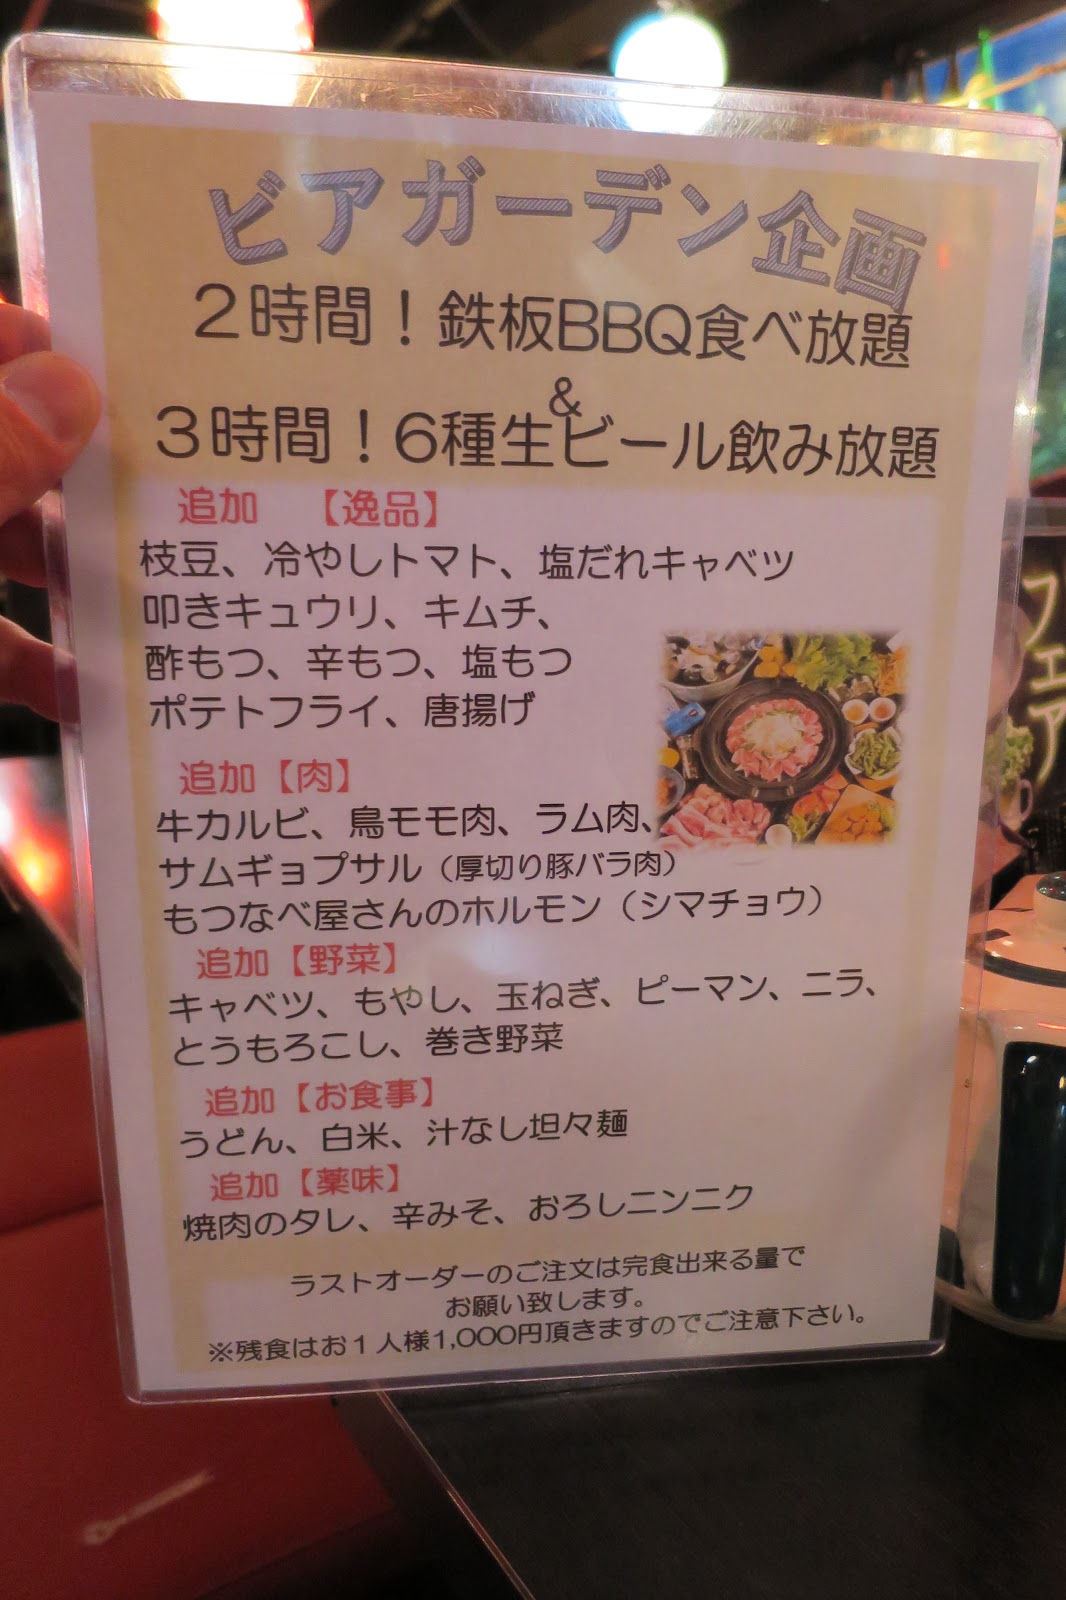 ビアガーデン企画
2時間！鉄板BBQ食べ放題
&
3時間！6種生ビール飲み放題
追加 【逸品】
枝豆、冷やしトマト、塩だれキャベツ
叩きキュウリ、キムチ、
酢もつ、辛もつ、塩もつ
ポテトフライ、唐揚げ
追加【肉】
牛カルビ、鳥モモ肉、ラム肉、
サムギョプサル（厚切り豚バラ肉）
もつなべ屋さんのホルモン（シマチョウ）
追加【野菜】
キャベツ、もやし、玉ねぎ、ピーマン、ニラ、
とうもろこし、巻き野菜
追加【お食事】
うどん、白米、汁なし坦々麺
追加【薬味】
焼肉のタレ、辛みそ、おろしニンニク
ラストオーダーのご注文は完食出来る量で
お願い致します。
※残食はお1人様1,000円頂きますのでご注意下さい。
フェア